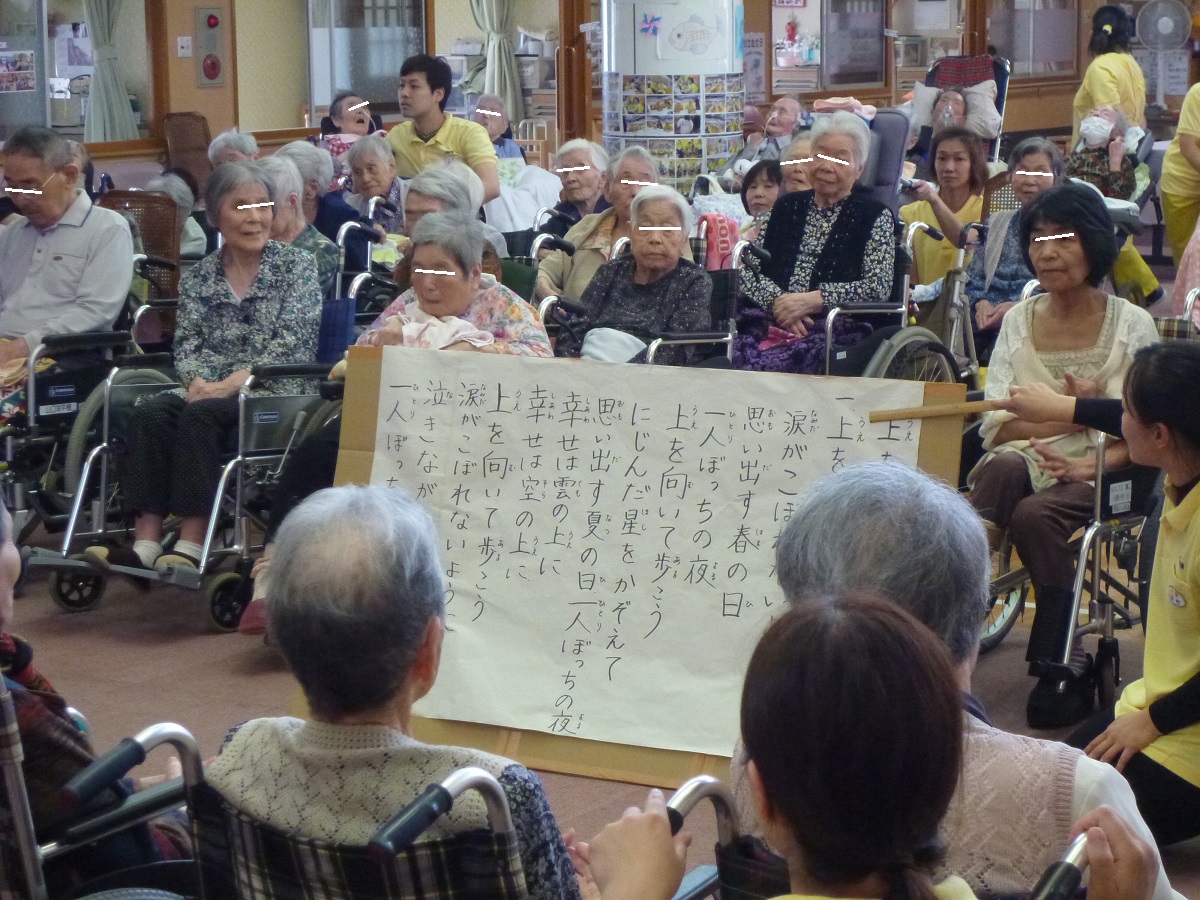 上
一 上を
涙がこぼれ
思い出す春の日
一人ぼっちの夜
上を向いて歩こう
にじんだ星をかぞえて
思い出す夏の日 一人ぼっちの夜
幸せは雲の上に
幸せは空の上に
上を向いて歩こう
涙がこぼれないように
泣きなが
一人ぼっ